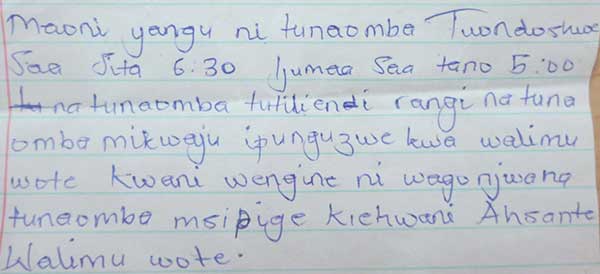 Maoni yangu ni tunaomba Tuondoshwe
Saa Sita 6:30 Ijumaa Saa tano 5:00
na tunaomba tutiliendi rangi na tuna
omba mikwaju ipunguzwe kwa walimu
wote kwani wengine ni wagonjwa na
tunaomba msipige kichwani Ahsante
Walimu wote.